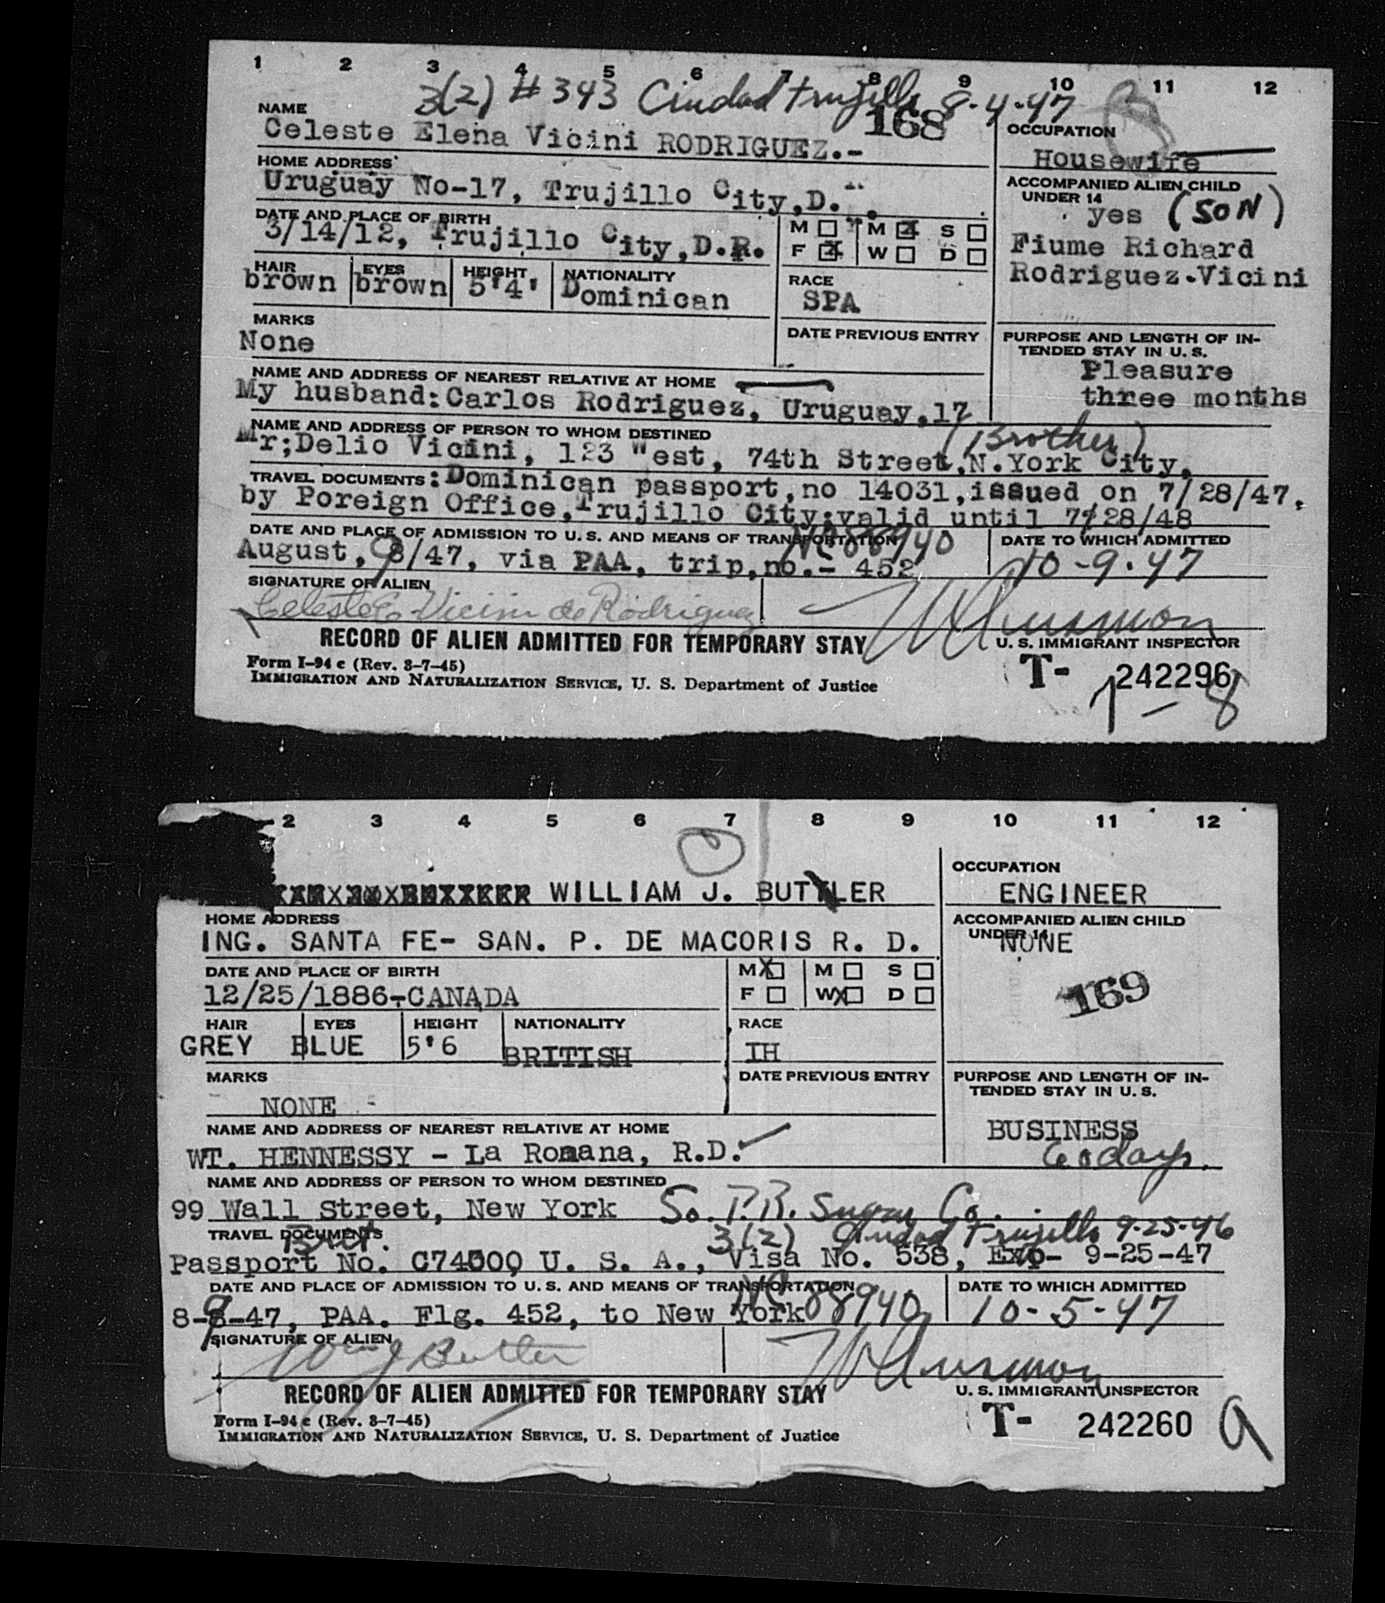 1 2 3 4 5 6 7 8 9 10 11 12
3(2) # 343 Ciudad Trujillo 8-4-47
NAME 168 OCCUPATION
Celeste Elena Vicini RODRIGUEZ.- Housewife
HOME ADDRESS ACCOMPANIED ALIEN CHILD UNDER 14
Uruguay No-17, Trujillo City,D. yes (SON)
DATE AND PLACE OF BIRTH M M S
3/14/12, Trujillo City,D.R. F X W D Fiume Richard
HAIR EYES HEIGHT NATIONALITY RACE Rodriguez-Vicini
brown brown 5'4' Dominican SPA
MARKS DATE PREVIOUS ENTRY PURPOSE AND LENGTH OF IN-
None TENDED STAY IN U. S.
NAME AND ADDRESS OF NEAREST RELATIVE AT HOME Pleasure
My husband:Carlos Rodriguez, Uruguay,17 three months
NAME AND ADDRESS OF PERSON TO WHOM DESTINED (Brother)
Mr;Delio Vicini, 123 West, 74th Street,N.York City,
TRAVEL DOCUMENTS:Dominican passport,no 14031,issued on 7/28/47,
by Foreign Office,Trujillo City;valid until 7/28/48
DATE AND PLACE OF ADMISSION TO U. S. AND MEANS OF TRANSPORTATION NC88940 DATE TO WHICH ADMITTED
August, 9/47, via PAA, trip,no.- 452 10-9-47
SIGNATURE OF ALIEN
Celeste E. Vicini de Rodriguez
RECORD OF ALIEN ADMITTED FOR TEMPORARY STAY U. S. IMMIGRANT INSPECTOR
Form I-94 c (Rev. 3-7-45) T- 242296
IMMIGRATION AND NATURALIZATION SERVICE, U. S. Department of Justice
1 - 8
2 3 4 5 6 7 8 9 10 11 12
OCCUPATION
WILLIAM J. BUTLER ENGINEER
HOME ADDRESS ACCOMPANIED ALIEN CHILD
ING. SANTA FE- SAN. P. DE MACORIS R. D. UNDER 14 NONE
DATE AND PLACE OF BIRTH M X M S
12/25/1886-CANADA F W X D 169
HAIR EYES HEIGHT NATIONALITY RACE
GREY BLUE 5'6 BRITISH IH
MARKS DATE PREVIOUS ENTRY PURPOSE AND LENGTH OF IN-
TENDED STAY IN U. S.
NONE
NAME AND ADDRESS OF NEAREST RELATIVE AT HOME BUSINESS
WT. HENNESSY - La Romana, R.D. 60 days.
NAME AND ADDRESS OF PERSON TO WHOM DESTINED
99 Wall Street, New York So. P.R. Sugar Co.
TRAVEL DOCUMENTS Brit. 3(2) Ciudad Trujillo 9-25-46
Passport No. C74000 U. S. A., Visa No. 538, Exp- 9-25-47
DATE AND PLACE OF ADMISSION TO U. S. AND MEANS OF TRANSPORTATION NC 88940 DATE TO WHICH ADMITTED
8-9-47, PAA. Flg. 452, to New York 10-5-47
SIGNATURE OF ALIEN
Wm J Butler
RECORD OF ALIEN ADMITTED FOR TEMPORARY STAY U. S. IMMIGRANT INSPECTOR
Form I-94 c (Rev. 3-7-45) T- 242260 9
IMMIGRATION AND NATURALIZATION SERVICE, U. S. Department of Justice